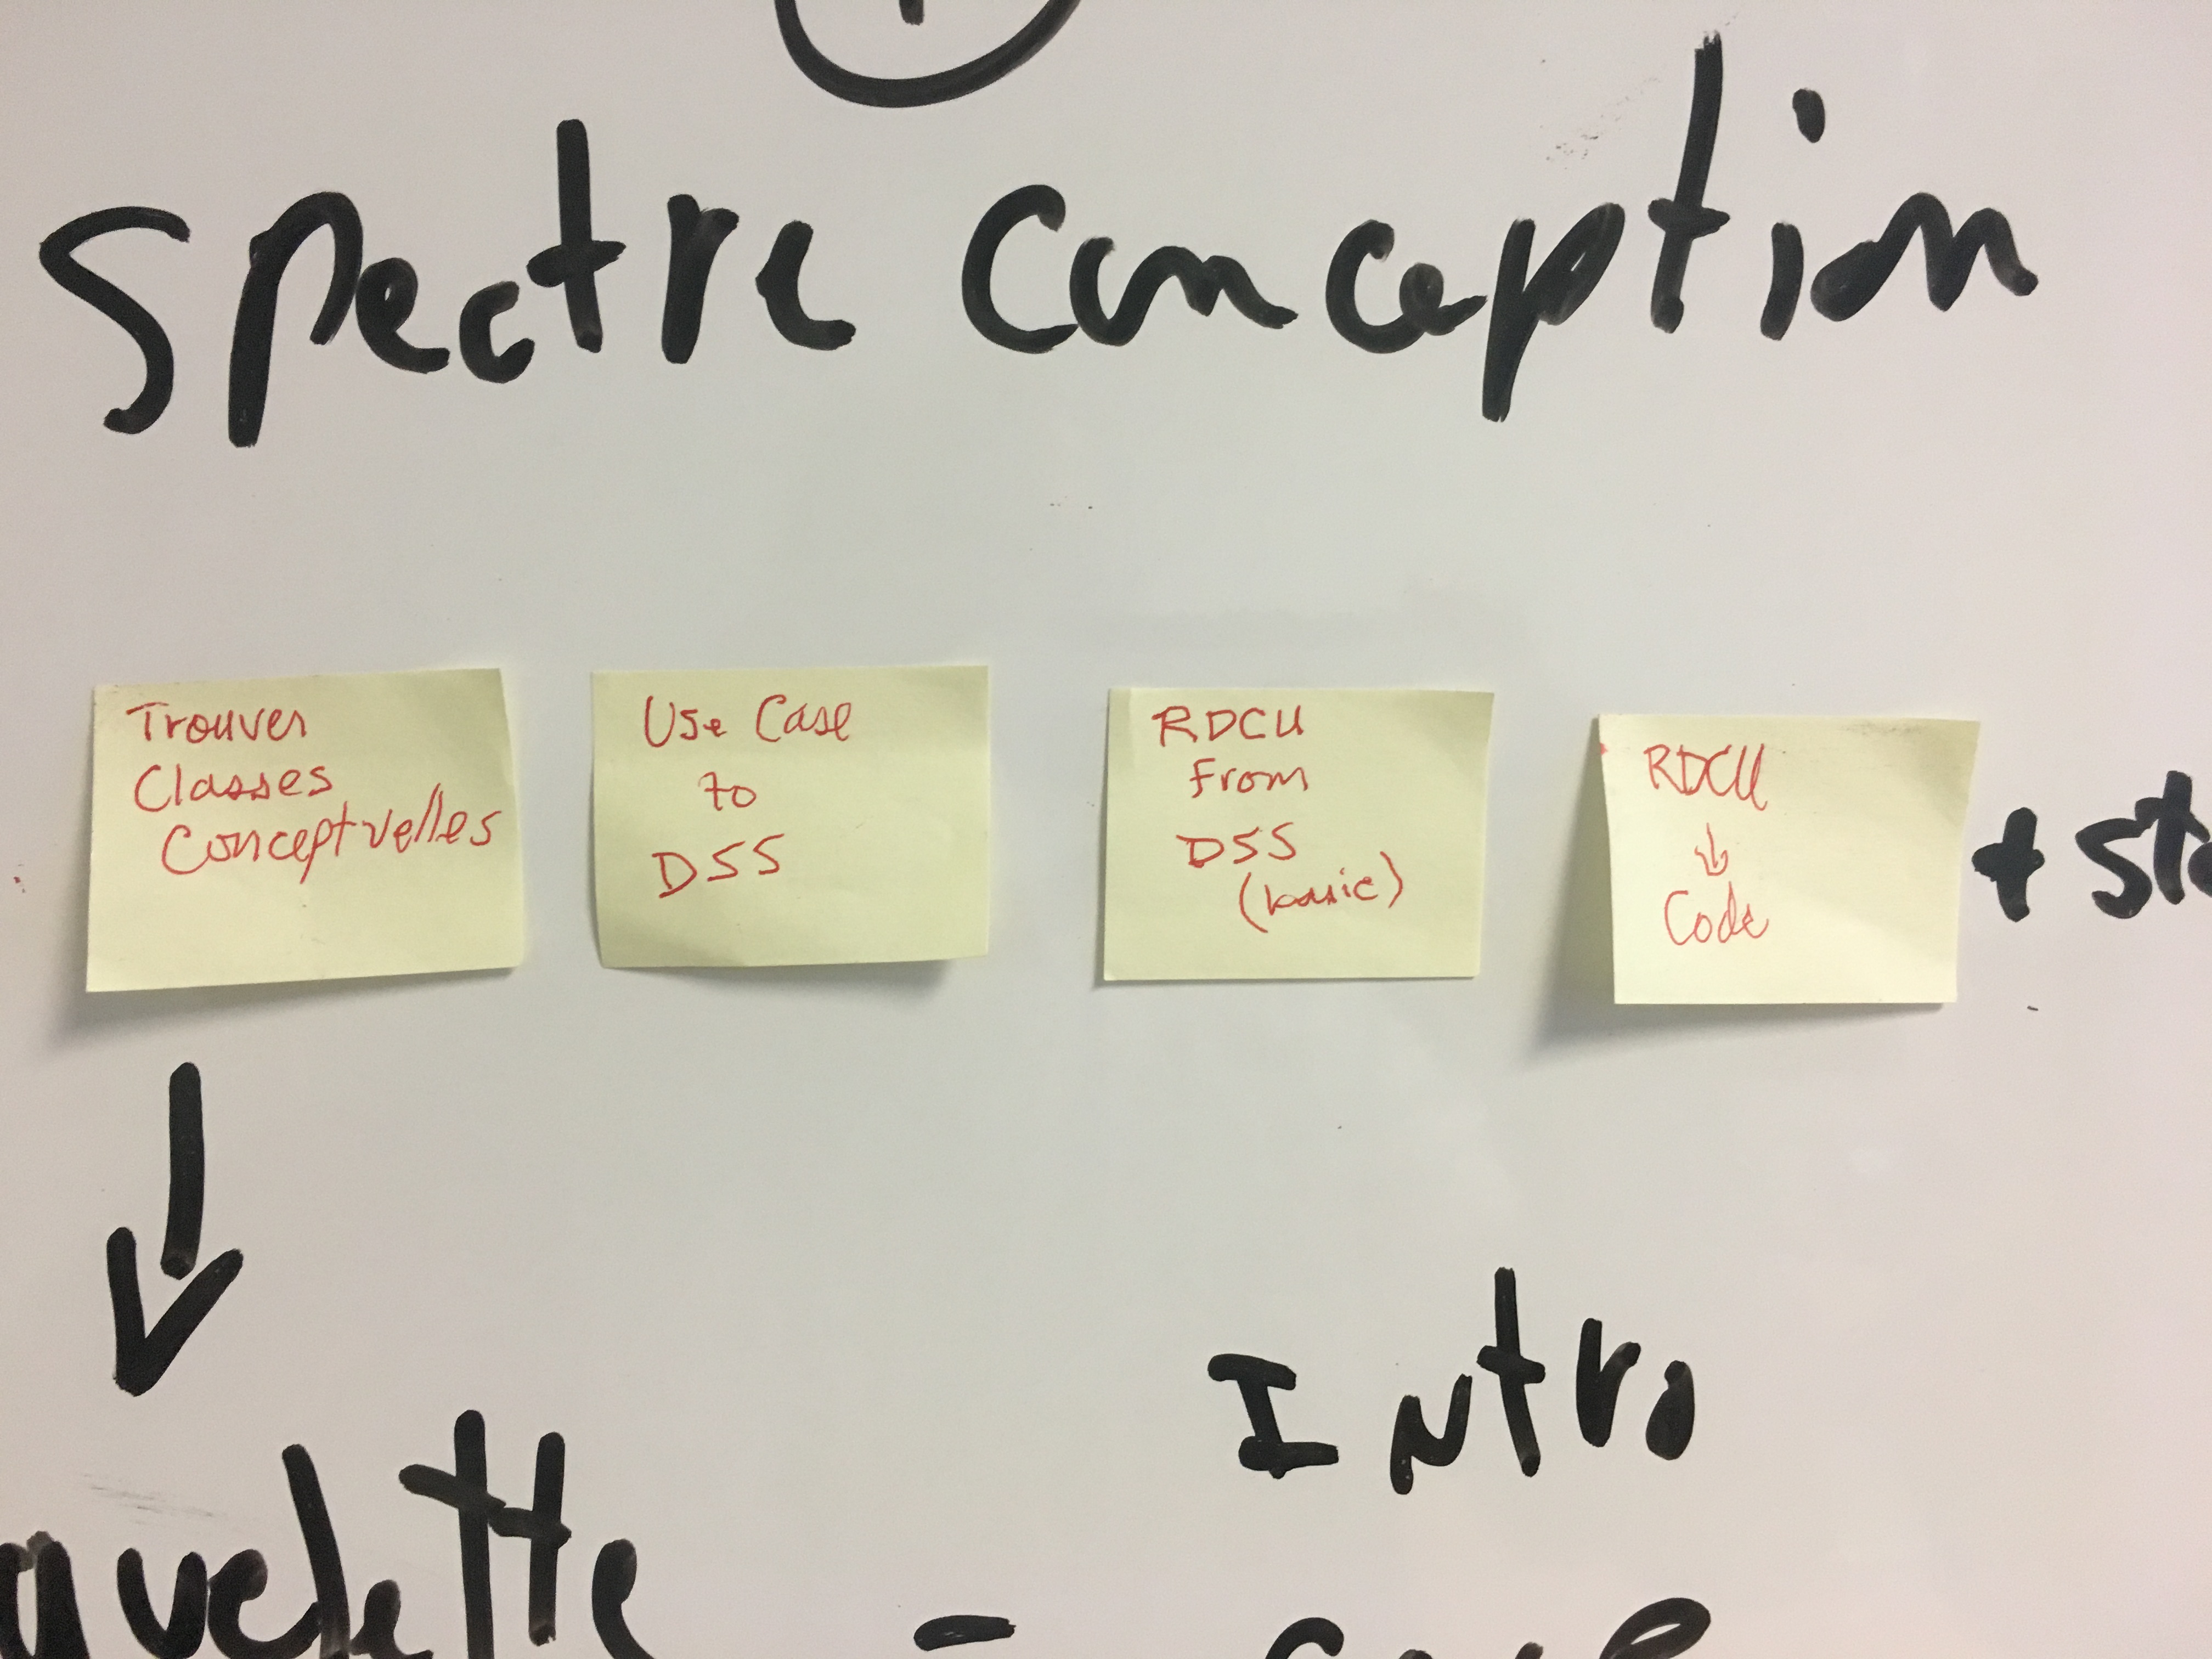 Spectre Conception
Trouver
Classes
Conceptuelles
Use Case
to
DSS
RDCU
From
DSS
(basic)
RDCU
↓
Code
+
Intro
-